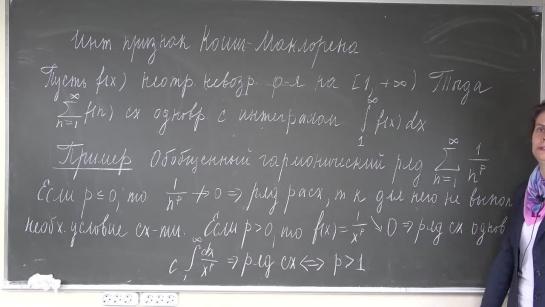 Инт признак Коши-Маклорена
Пусть f(x) неотр. невозр ф-я на [1, +∞) Тогда
∑_{n=1}^{∞} f(n) сх одновр с интегралом ∫_1^∞ f(x) dx
Пример Обобщенный гармонический ряд ∑_{n=1}^{∞} 1/n^p
Если p ≤ 0, то 1/n^p ↛ 0 ⇒ ряд расх, т к для него не выпол
необх. условие сх-ти. Если p > 0, то f(x) = 1/x^p ↘ 0 ⇒ ряд сх однов
с ∫_1^∞ dx/x^p ⇒ ряд сх ⇔ p > 1